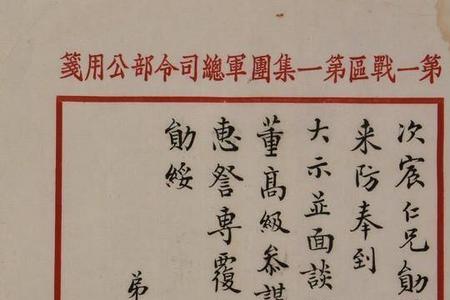 第一戰區第一集團軍總司令部公用箋
次宸仁兄勛
来防奉到
大示並面談
董高級参謀
惠詧專覆
勛綏
弟